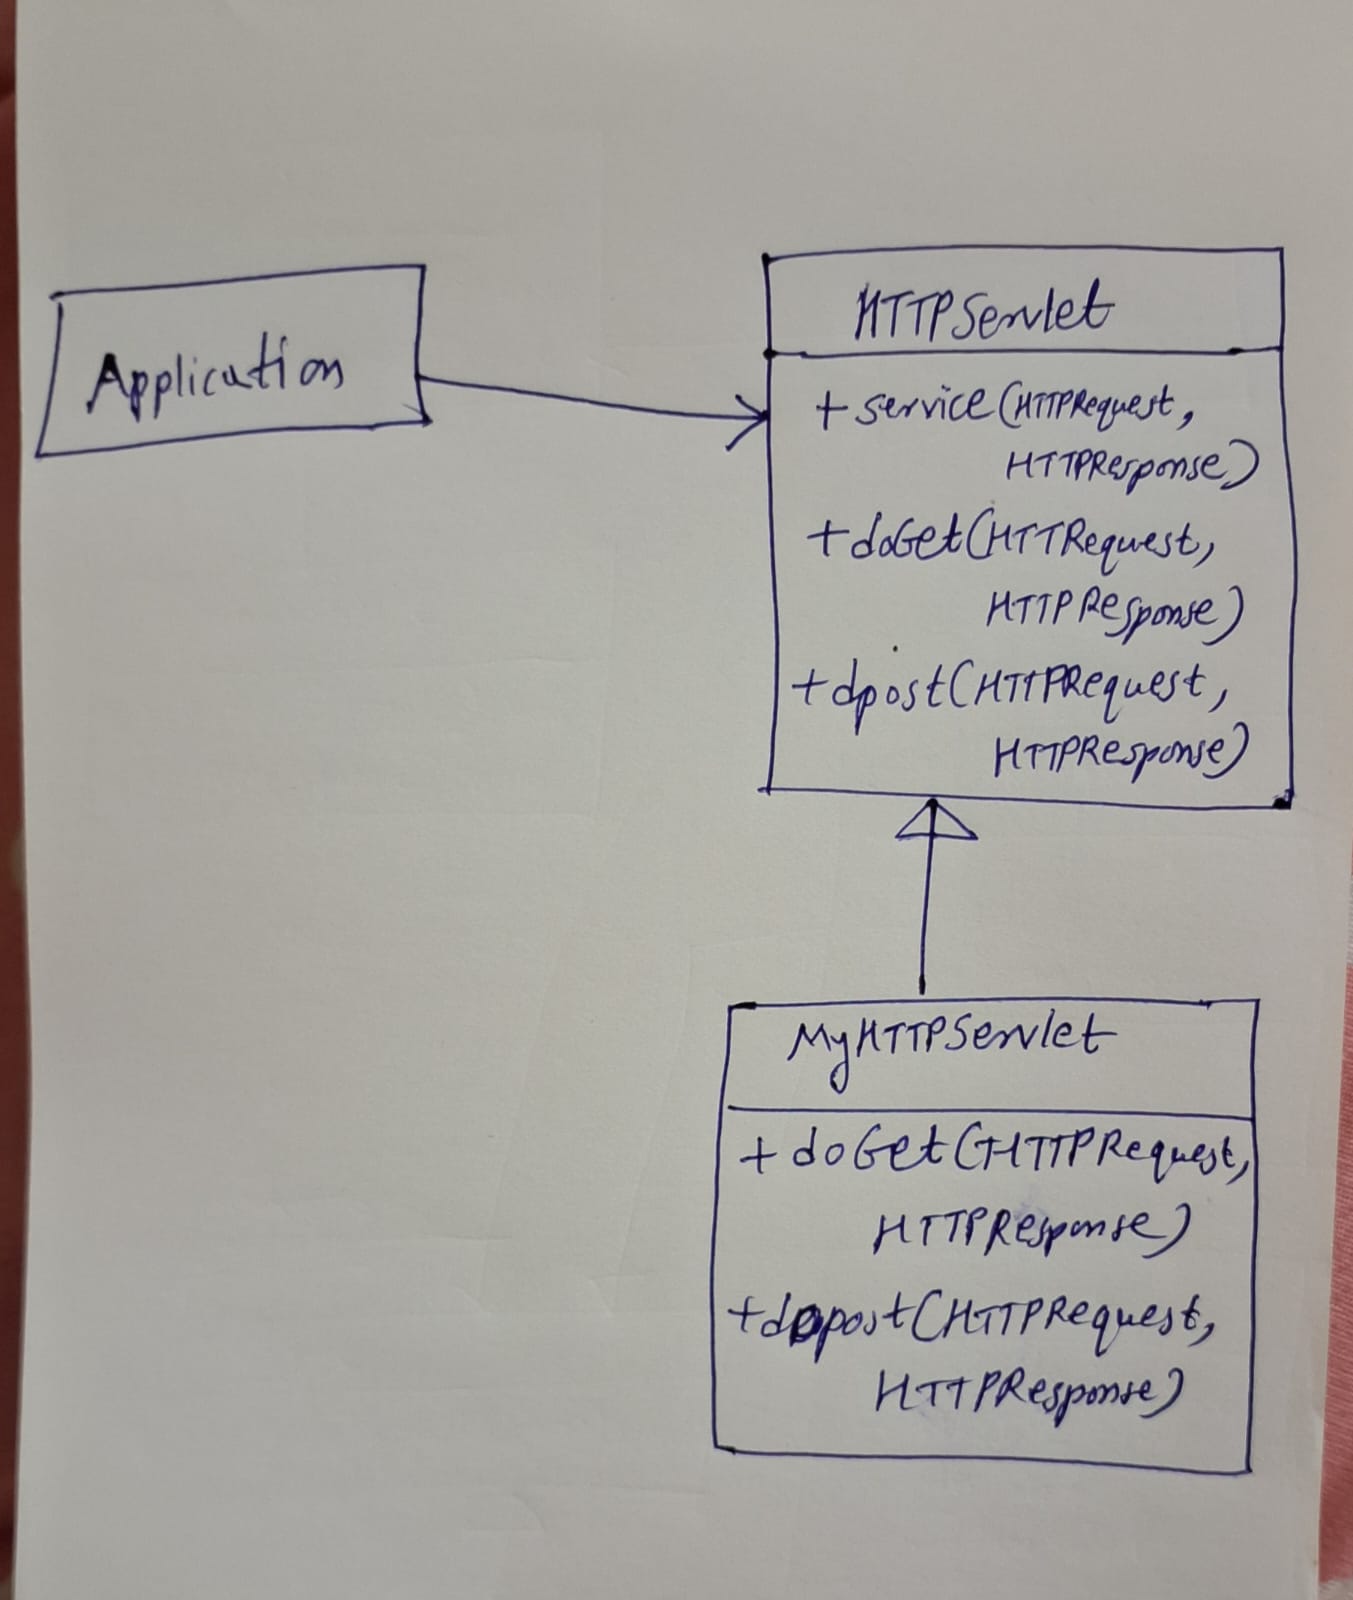 Application
HTTPServlet
+ service(HTTPRequest,
HTTPResponse)
+ doGet(HTTRequest,
HTTPResponse)
+ dpost(HTTPRequest,
HTTPResponse)
MyHTTPServlet
+ doGet(HTTPRequest,
HTTPResponse)
+dopost(HTTPRequest,
HTTPResponse)